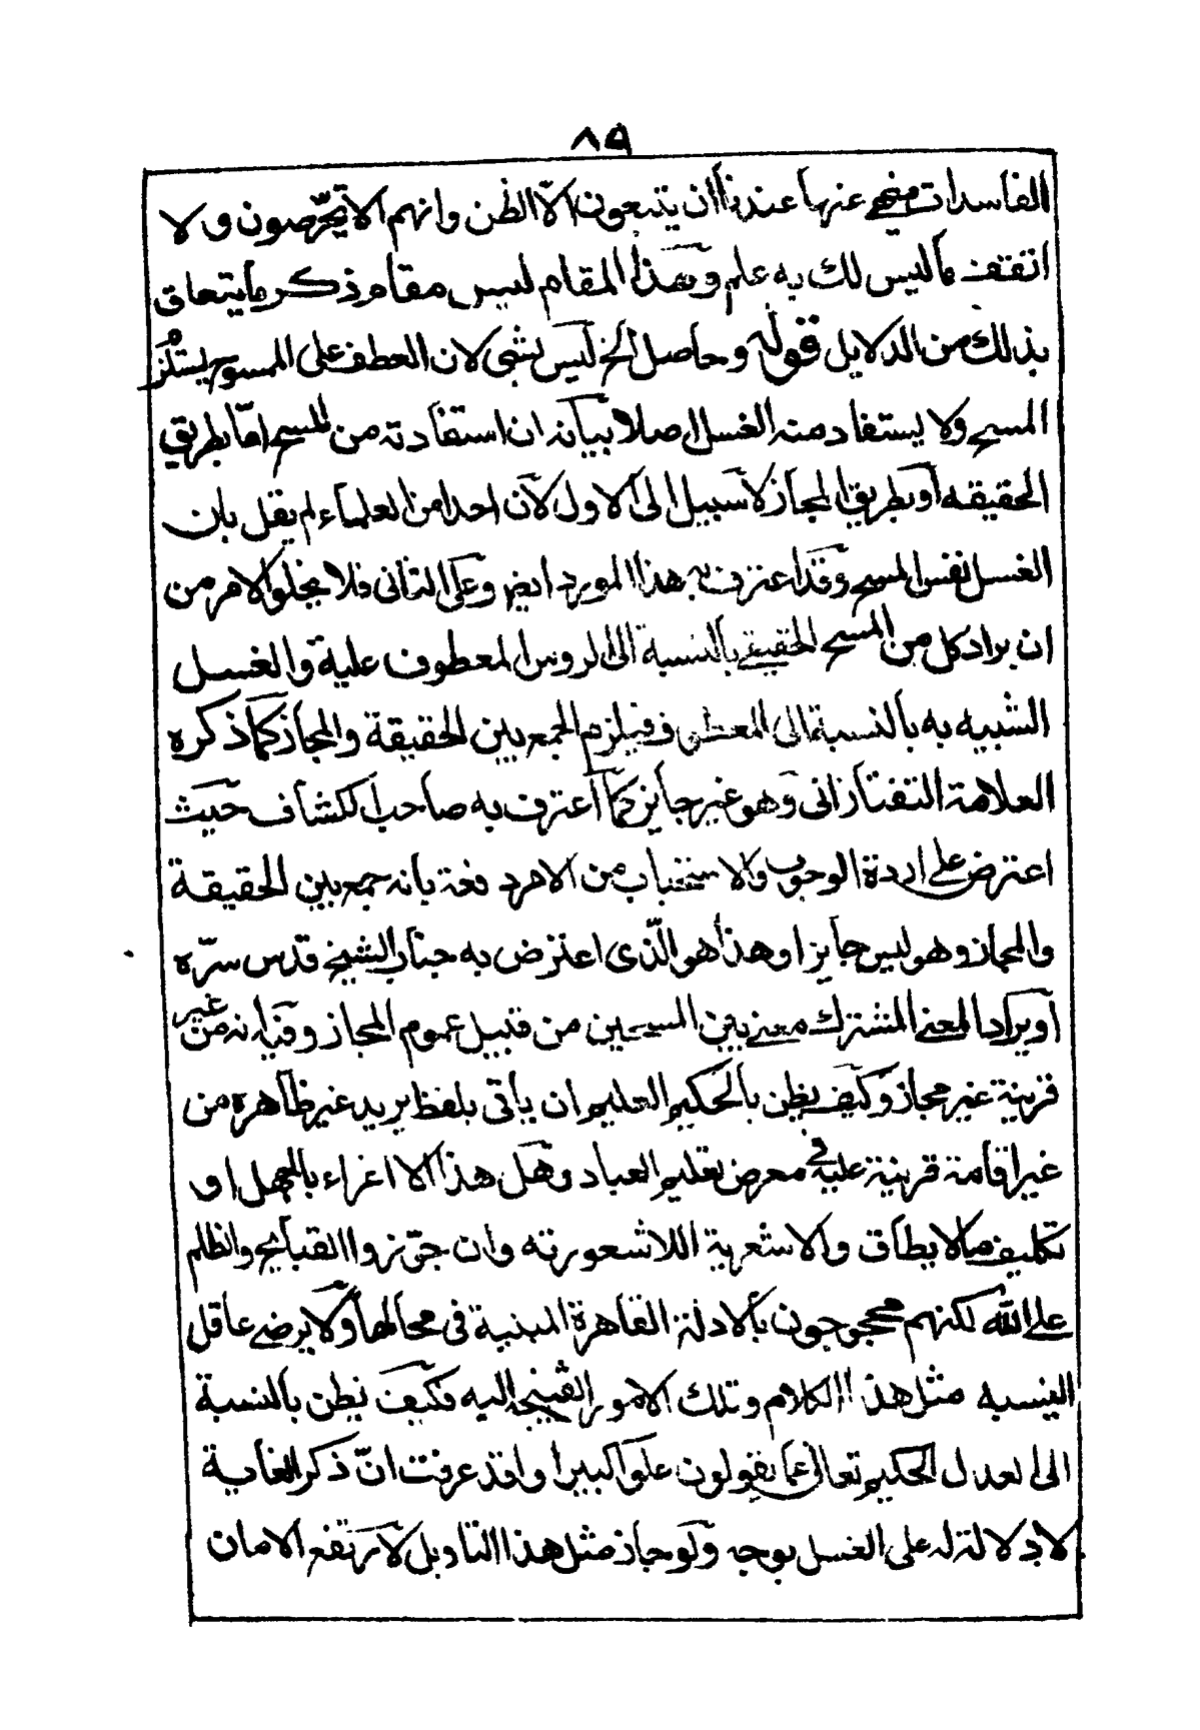 ٨٩
الفاسدات منهي عنها عندنا ان يتبعون الّا الظن وانهم الا يخّرصون ولا
اتقف ماليس لك به علم وهذا المقام ليس مقام ذكر مايتعلق
بذلك من الدلايل قوله وحاصل الخ ليس بشى لان العطف على الممسوح يستلزم
المسح ولا يستفاد منه الغسل اصلا بيانه ان استفادته من المسح امّا بطريق
الحقيقه او بطريق المجاز لا سبيل الى الاول لان احدا من العلماء لم يقل بان
الغسل نفس المسح وقد اعترف به هذا المورد ايضا وعلى الثانى فلا يخلو الامر من
ان يراد كل من المسح الحقيقي بالنسبة الى الروس المعطوف عليه والغسل
الشبيه به بالنسبة الى المعطوف فيلزم الجمع بين الحقيقة والمجاز كما ذكره
العلامة التفتازانى وهو غير جايز كما اعترف به صاحب الكشاف حيث
اعترض على اردة الوجوب والاستحباب من الامر دفعة بانه جمع بين الحقيقة
والمجاز وهو ليس جايزا وهذا هو الّذى اعترض به جناب الشيخ قدس سرّه
او يراد المعنى المشترك معنى بين المسحين من قبيل عموم المجاز وفيه انه من غير
قرينة غير مجاز وكيف يظن بالحكيم العليم ان ياتى بلفظ يريد غير ظاهره من
غير اقامة قرينة عليه في معرض تعليم العباد وهل هذا الا اغراء بالجهل او
تكليف مالا يطاق والاشعرية اللاشعورته وان جوّزوا القبايح والظلم
على الله لكنهم محجوجون بالادلة القاهرة المبنية في محالها ولا يرضى عاقل
لنفسه مثل هذا الكلام وتلك الامور القبيحة اليه فكيف يظن بالنسبة
الى العدل الحكيم تعالى عما يقولون علوا كبيرا ولقد عرفت انّ ذكر الغاية
لا دلالة له على الغسل بوجه ولو جاز مثل هذا التاويل لارتفع الامان